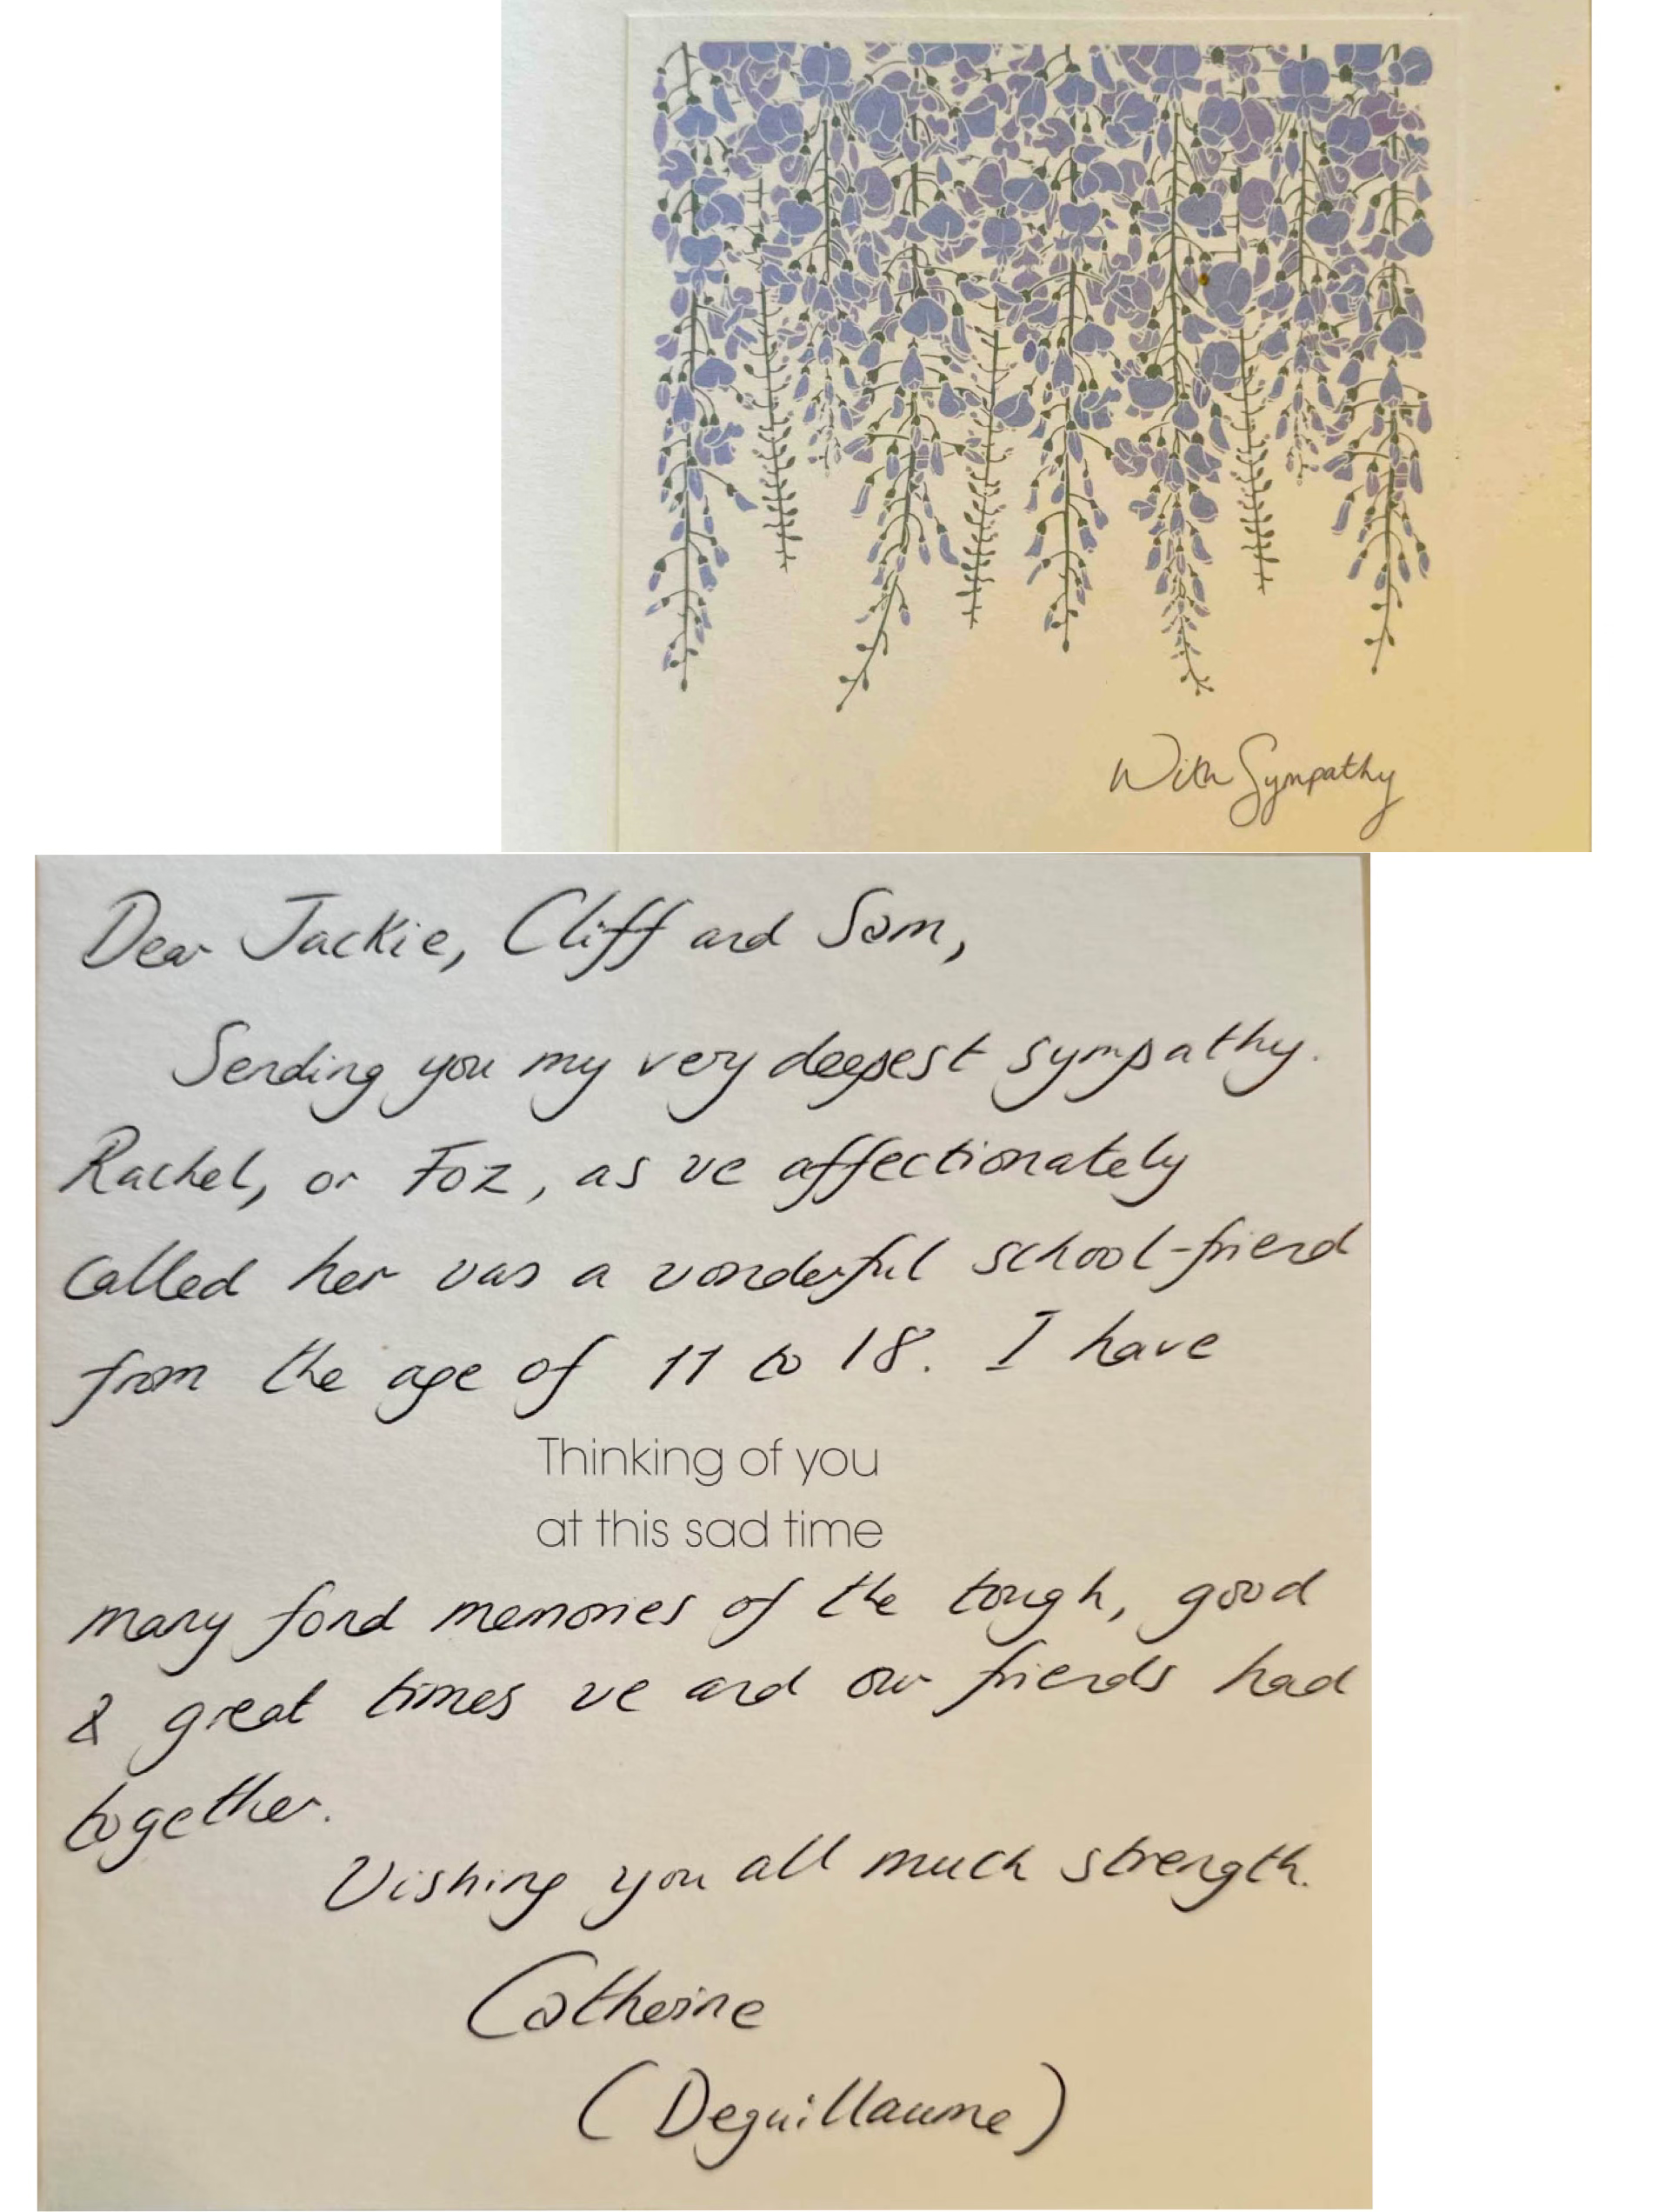 With Sympathy
Dear Jackie, Cliff and Sam,
Sending you my very deepest sympathy.
Rachel, or Foz, as we affectionately
called her was a wonderful school-friend
from the age of 11 to 18. I have
Thinking of you
at this sad time
many fond memories of the tough, good
& great times we and our friends had
together.
Wishing you all much strength.
Catherine
(Deguillaume)